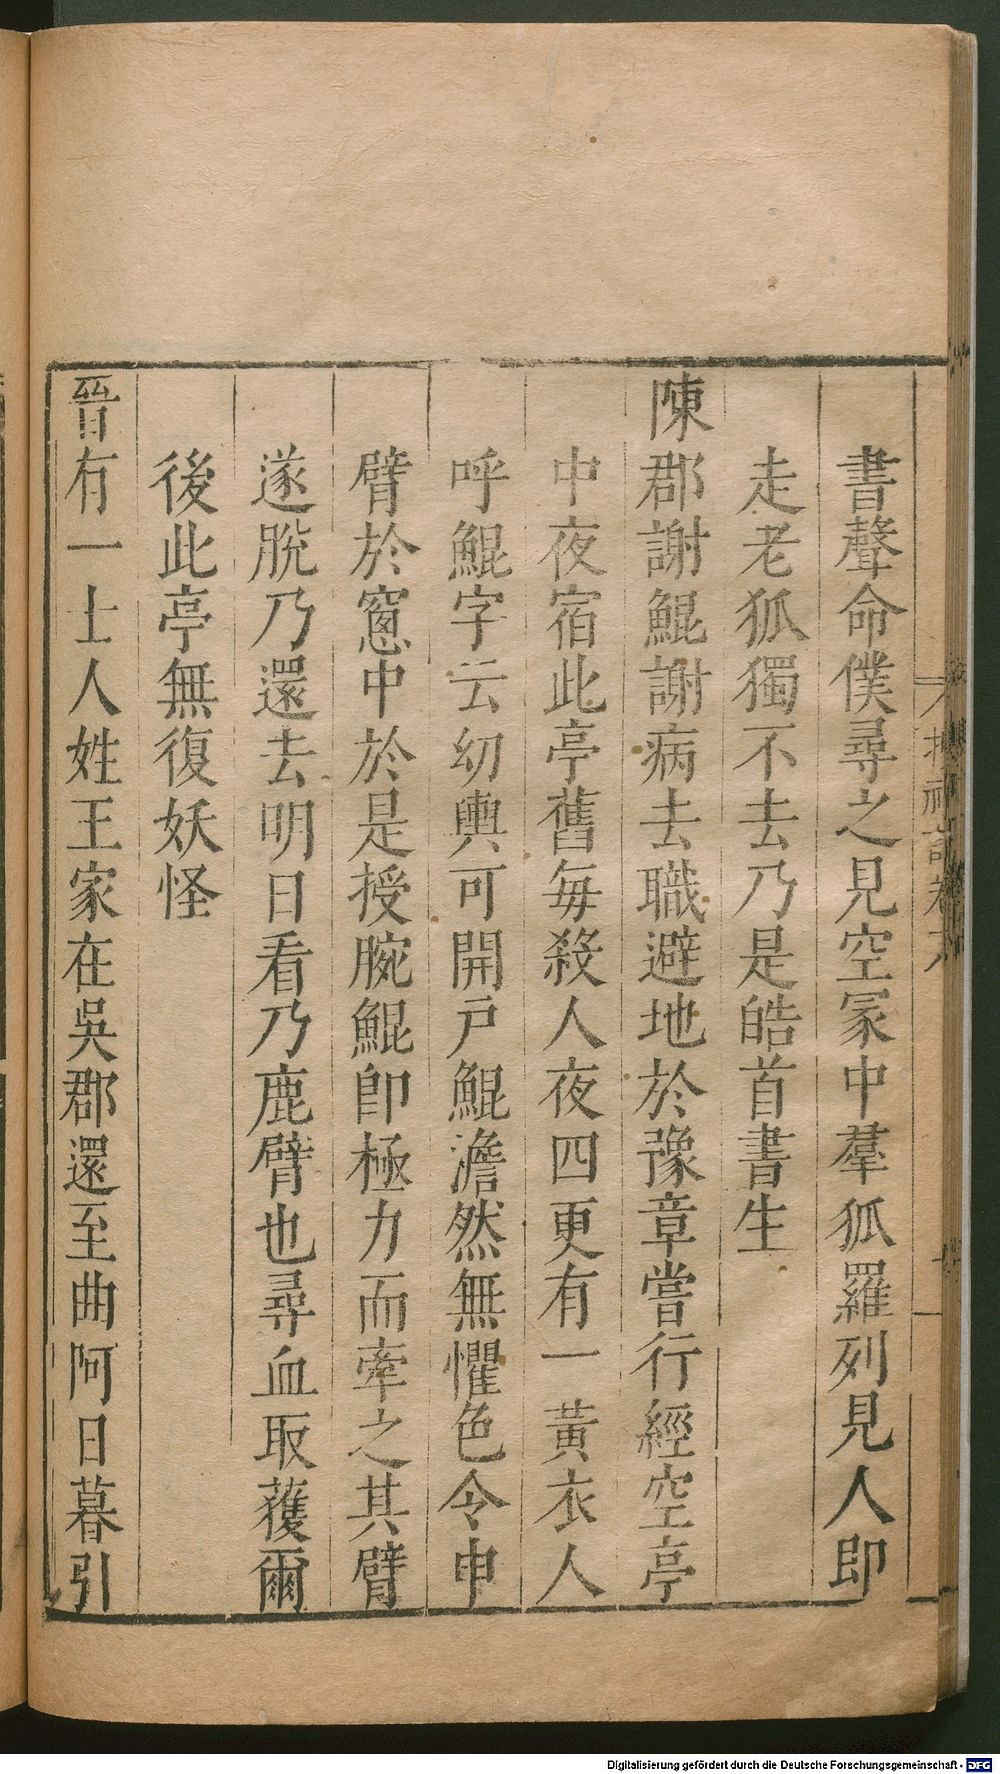 書聲命僕尋之見空冢中羣狐羅列見人即
走老狐獨不去乃是皓首書生
陳郡謝鯤謝病去職避地於豫章嘗行經空亭
中夜宿此亭舊每殺人夜四更有一黃衣人
呼鯤字云幼輿可開戶鯤澹然無懼色令申
臂於窻中於是授腕鯤卽極力而牽之其臂
遂脫乃還去明日看乃鹿臂也尋血取蒦爾
後此亭無復妖怪
晉有一士人姓王家在吳郡還至曲阿日暮引
Digitalisierung gefördert durch die Deutsche Forschungsgemeinschaft - DFG